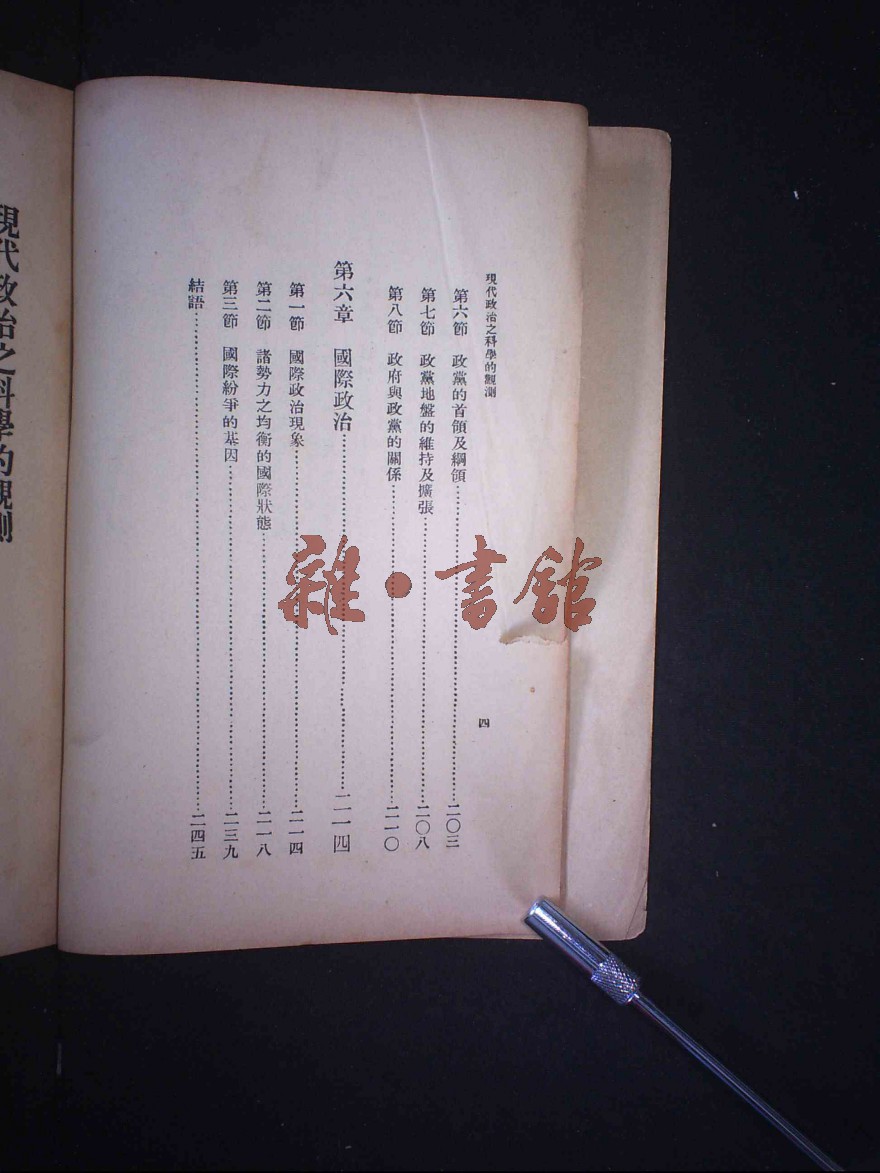 現代政治之科學的觀測
四
第六節 政黨的首領及綱領……二〇三
第七節 政黨地盤的維持及擴張……二〇八
第八節 政府與政黨的關係……二一〇
第六章 國際政治……二一四
第一節 國際政治現象……二一四
第二節 諸勢力之均衡的國際狀態……二一八
第三節 國際紛爭的基因……二三九
結語……二四五
現代政治之科學的觀測
雜·書館